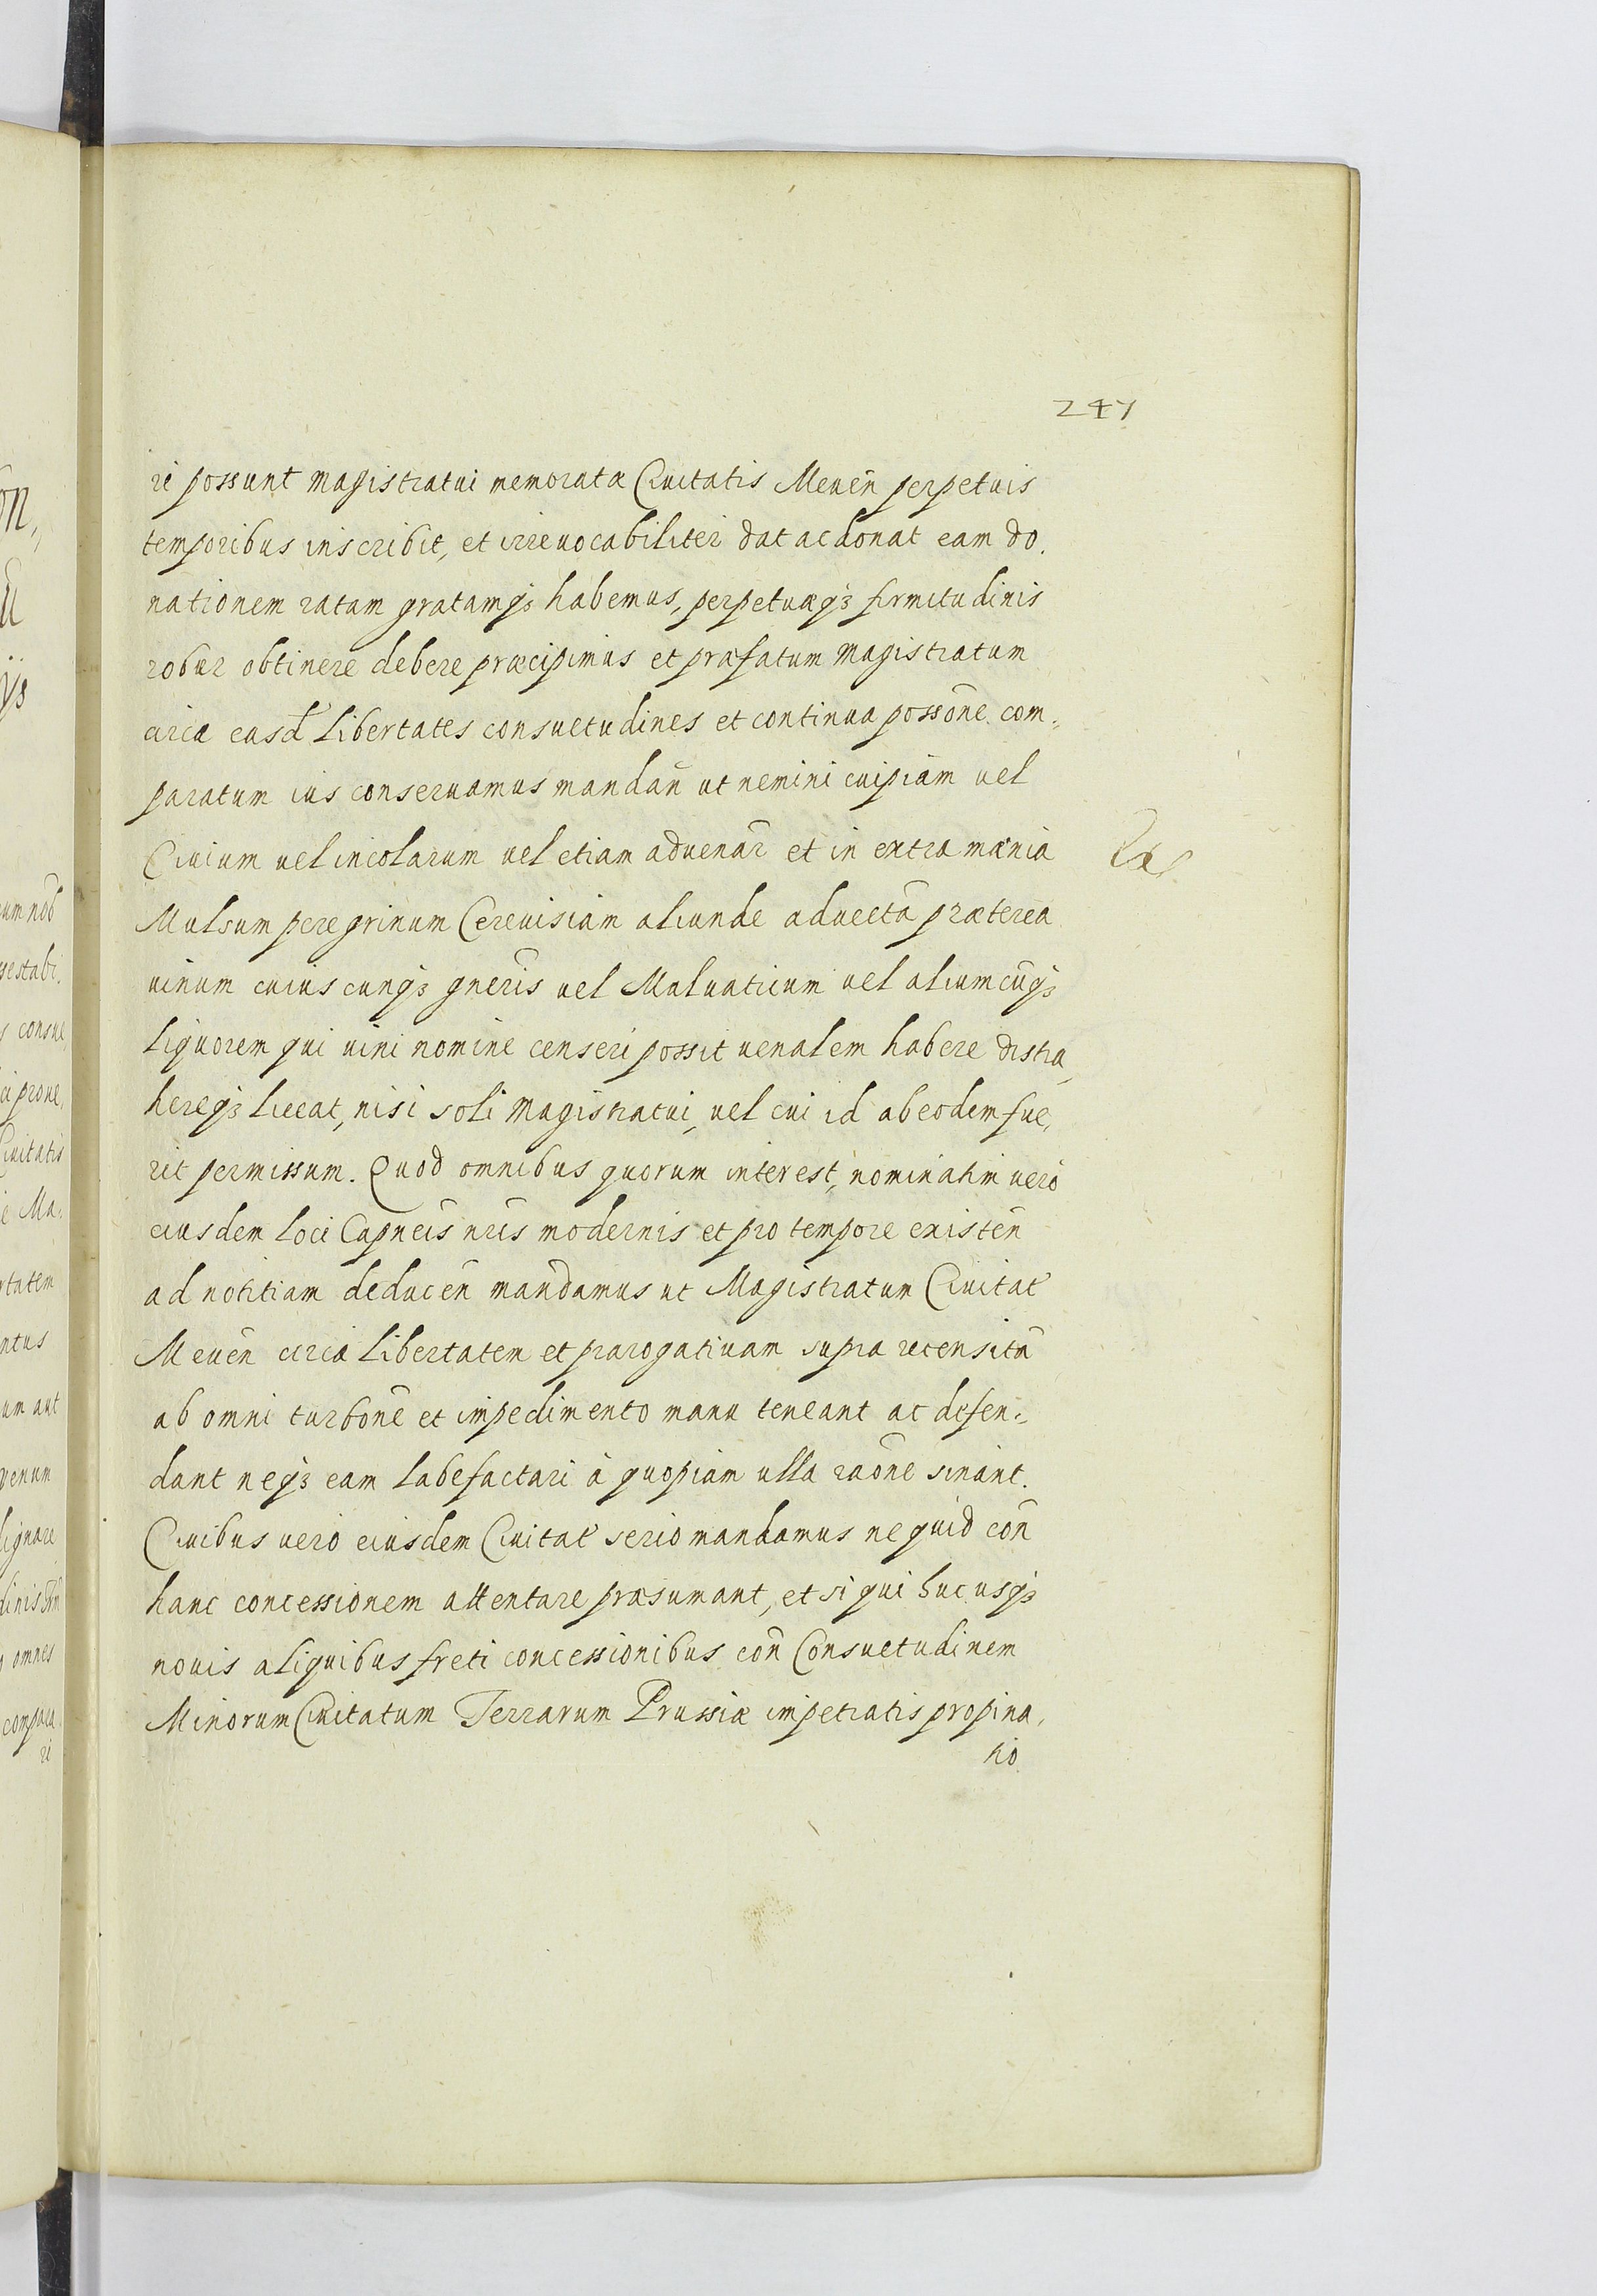 247
ri possunt magistratui memoratæ Ciuitatis Meueñ perpetuis
temporibus inscribit, et irreuocabiliter dat ac donat eam do,
nationem ratam gratamqꝫ habemus, perpetuæqꝫ firmitudinis
robur obtinere debere præcipimus et præfatum magistratum
circa easd libertates consuetudines et continua possōne com,,
paratum ius conseruamus mandañ ut nemini cuipiam uel
Ciuium uel incolarum uel etiam aduenar̄ et in extra mænia
Mulsum peregrinum Cereuisiam aliunde aduectā præterea
uinum cuiuscunqꝫ gneris uel Maluaticum uel aliumcūqꝫ
liquorem qui uini nomine censeri possit uenalem habere distra,
hereqꝫ liceat, nisi soli magistratui, uel cui id ab eodem fue,
rit permissum. Quod omnibus quorum interest, nominatim uero
eiusdem loci Capneis nris modernis et pro tempore existeñ
ad notitiam deduceñ mandamus ut Magistratum Ciuitat
Meueñ circa libertatem et prærogatiuam supra recensitā
ab omni turbōne et impedimento manu teneant ac defen,,
dant neqꝫ eam labefactari à quopiam ulla raōne sinant.
Ciuibus uero eiusdem Ciuitat serio mandamus ne quid coñ
hanc concessionem attentare præsumant, et si qui hucusqꝫ
nouis aliquibus freti concessionibus coñ Consuetudinem
Minorum Ciuitatum Terrarum Prussiæ impetratis propina,
tio